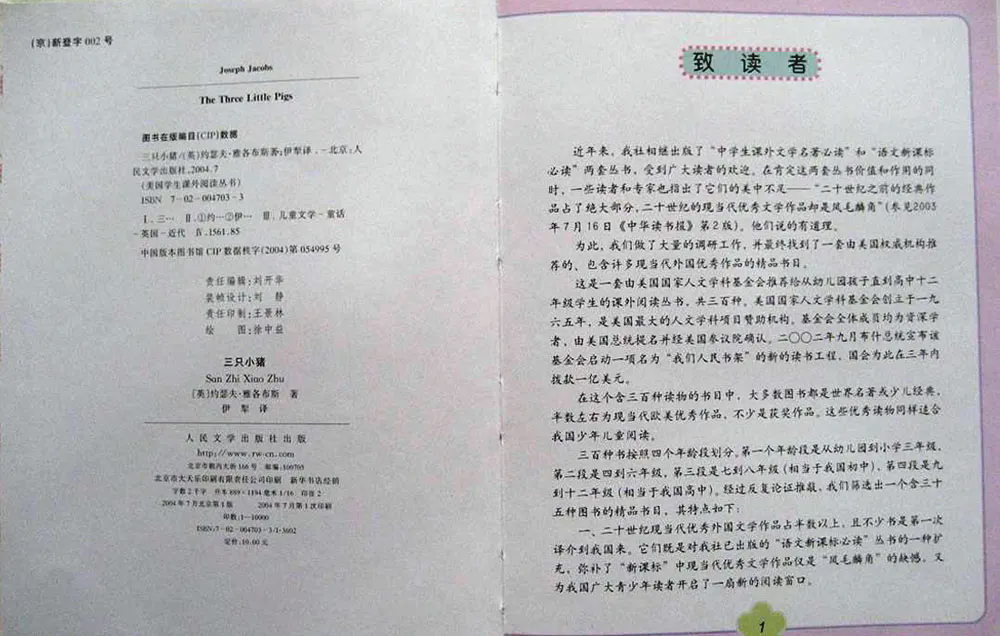 (京)新登字 002 号
Joseph Jacobs
The Three Little Pigs
图书在版编目(CIP)数据
三只小猪/(英)约瑟夫·雅各布斯著;伊犁译.-北京:人
民文学出版社,2004.7
(美国学生课外阅读丛书)
ISBN 7-02-004703-3
Ⅰ.三… Ⅱ.①约…②伊… Ⅲ.儿童文学-童话
-英国-近代 Ⅳ.I561.85
中国版本图书馆 CIP 数据核字(2004)第 054995 号
责任编辑:刘开华
装帧设计:刘 静
责任印制:王景林
绘 图:徐中益
三只小猪
San Zhi Xiao Zhu
(英)约瑟夫·雅各布斯 著
伊 犁 译
人民文学出版社出版
http://www.rw-cn.com
北京市朝内大街 166 号 邮编:100705
北京市大天乐印刷有限责任公司印刷 新华书店经销
字数 2 千字 开本 889×1194 毫米 1/16 印张 2
2004 年 7 月北京第 1 版 2004 年 7 月第 1 次印刷
印数:1-10000
ISBN:7-02-004703-3/I·3602
定价:10.00 元
致读者
近年来,我社相继出版了“中学生课外文学名著必读”和“语文新课标
必读”两套丛书,受到广大读者的欢迎。在肯定这两套丛书价值和作用的同
时,一些读者和专家也指出了它们的美中不足——“二十世纪之前的经典作
品占了绝大部分,二十世纪的现当代优秀文学作品却是凤毛麟角”(参见2003
年7月16日《中华读书报》第2版)。他们说的有道理。
为此,我们做了大量的调研工作,并最终找到了一套由美国权威机构推
荐的、包含许多现当代外国优秀作品的精品书目。
这是一套由美国国家人文学科基金会推荐给从幼儿园孩子直到高中十二
年级学生的课外阅读丛书,共三百种。美国国家人文学科基金会创立于一九
六五年,是美国最大的人文学科项目赞助机构。基金会全体成员均为资深学
者,由美国总统提名并经美国参议院确认。二〇〇二年九月布什总统宣布该
基金会启动一项名为“我们人民书架”的新的读书工程,国会为此在三年内
拨款一亿美元。
在这个含三百种读物的书目中,大多数图书都是世界名著或少儿经典,
半数左右为现当代欧美优秀作品,不少是获奖作品。这些优秀读物同样适合
我国少年儿童阅读。
三百种书按照四个年龄段划分。第一个年龄段是从幼儿园到小学三年级,
第二段是四到六年级,第三段是七到八年级(相当于我国初中),第四段是九
到十二年级(相当于我国高中)。经过反复论证推敲,我们筛选出一个含三十
五种图书的精品书目,其特点如下:
一、二十世纪现当代优秀外国文学作品占半数以上,且不少书是第一次
译介到我国来。它们既是对我社已出版的“语文新课标必读”丛书的一种扩
充,弥补了“新课标”中现当代优秀文学作品仅是“凤毛麟角”的缺憾,又
为我国广大青少年读者开启了一扇新的阅读窗口。
1